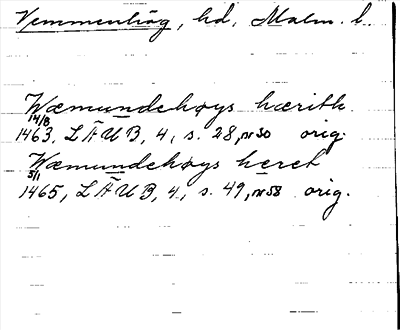 Vemmenhög, hd, Malm. l.
Wæmundehøys hærith
14/8
1463, L Ä U B, 4, s. 28, nr 30 orig.
Wæmundehøys heret
5/1
1465, L Ä U B, 4, s. 49, nr 58 orig.